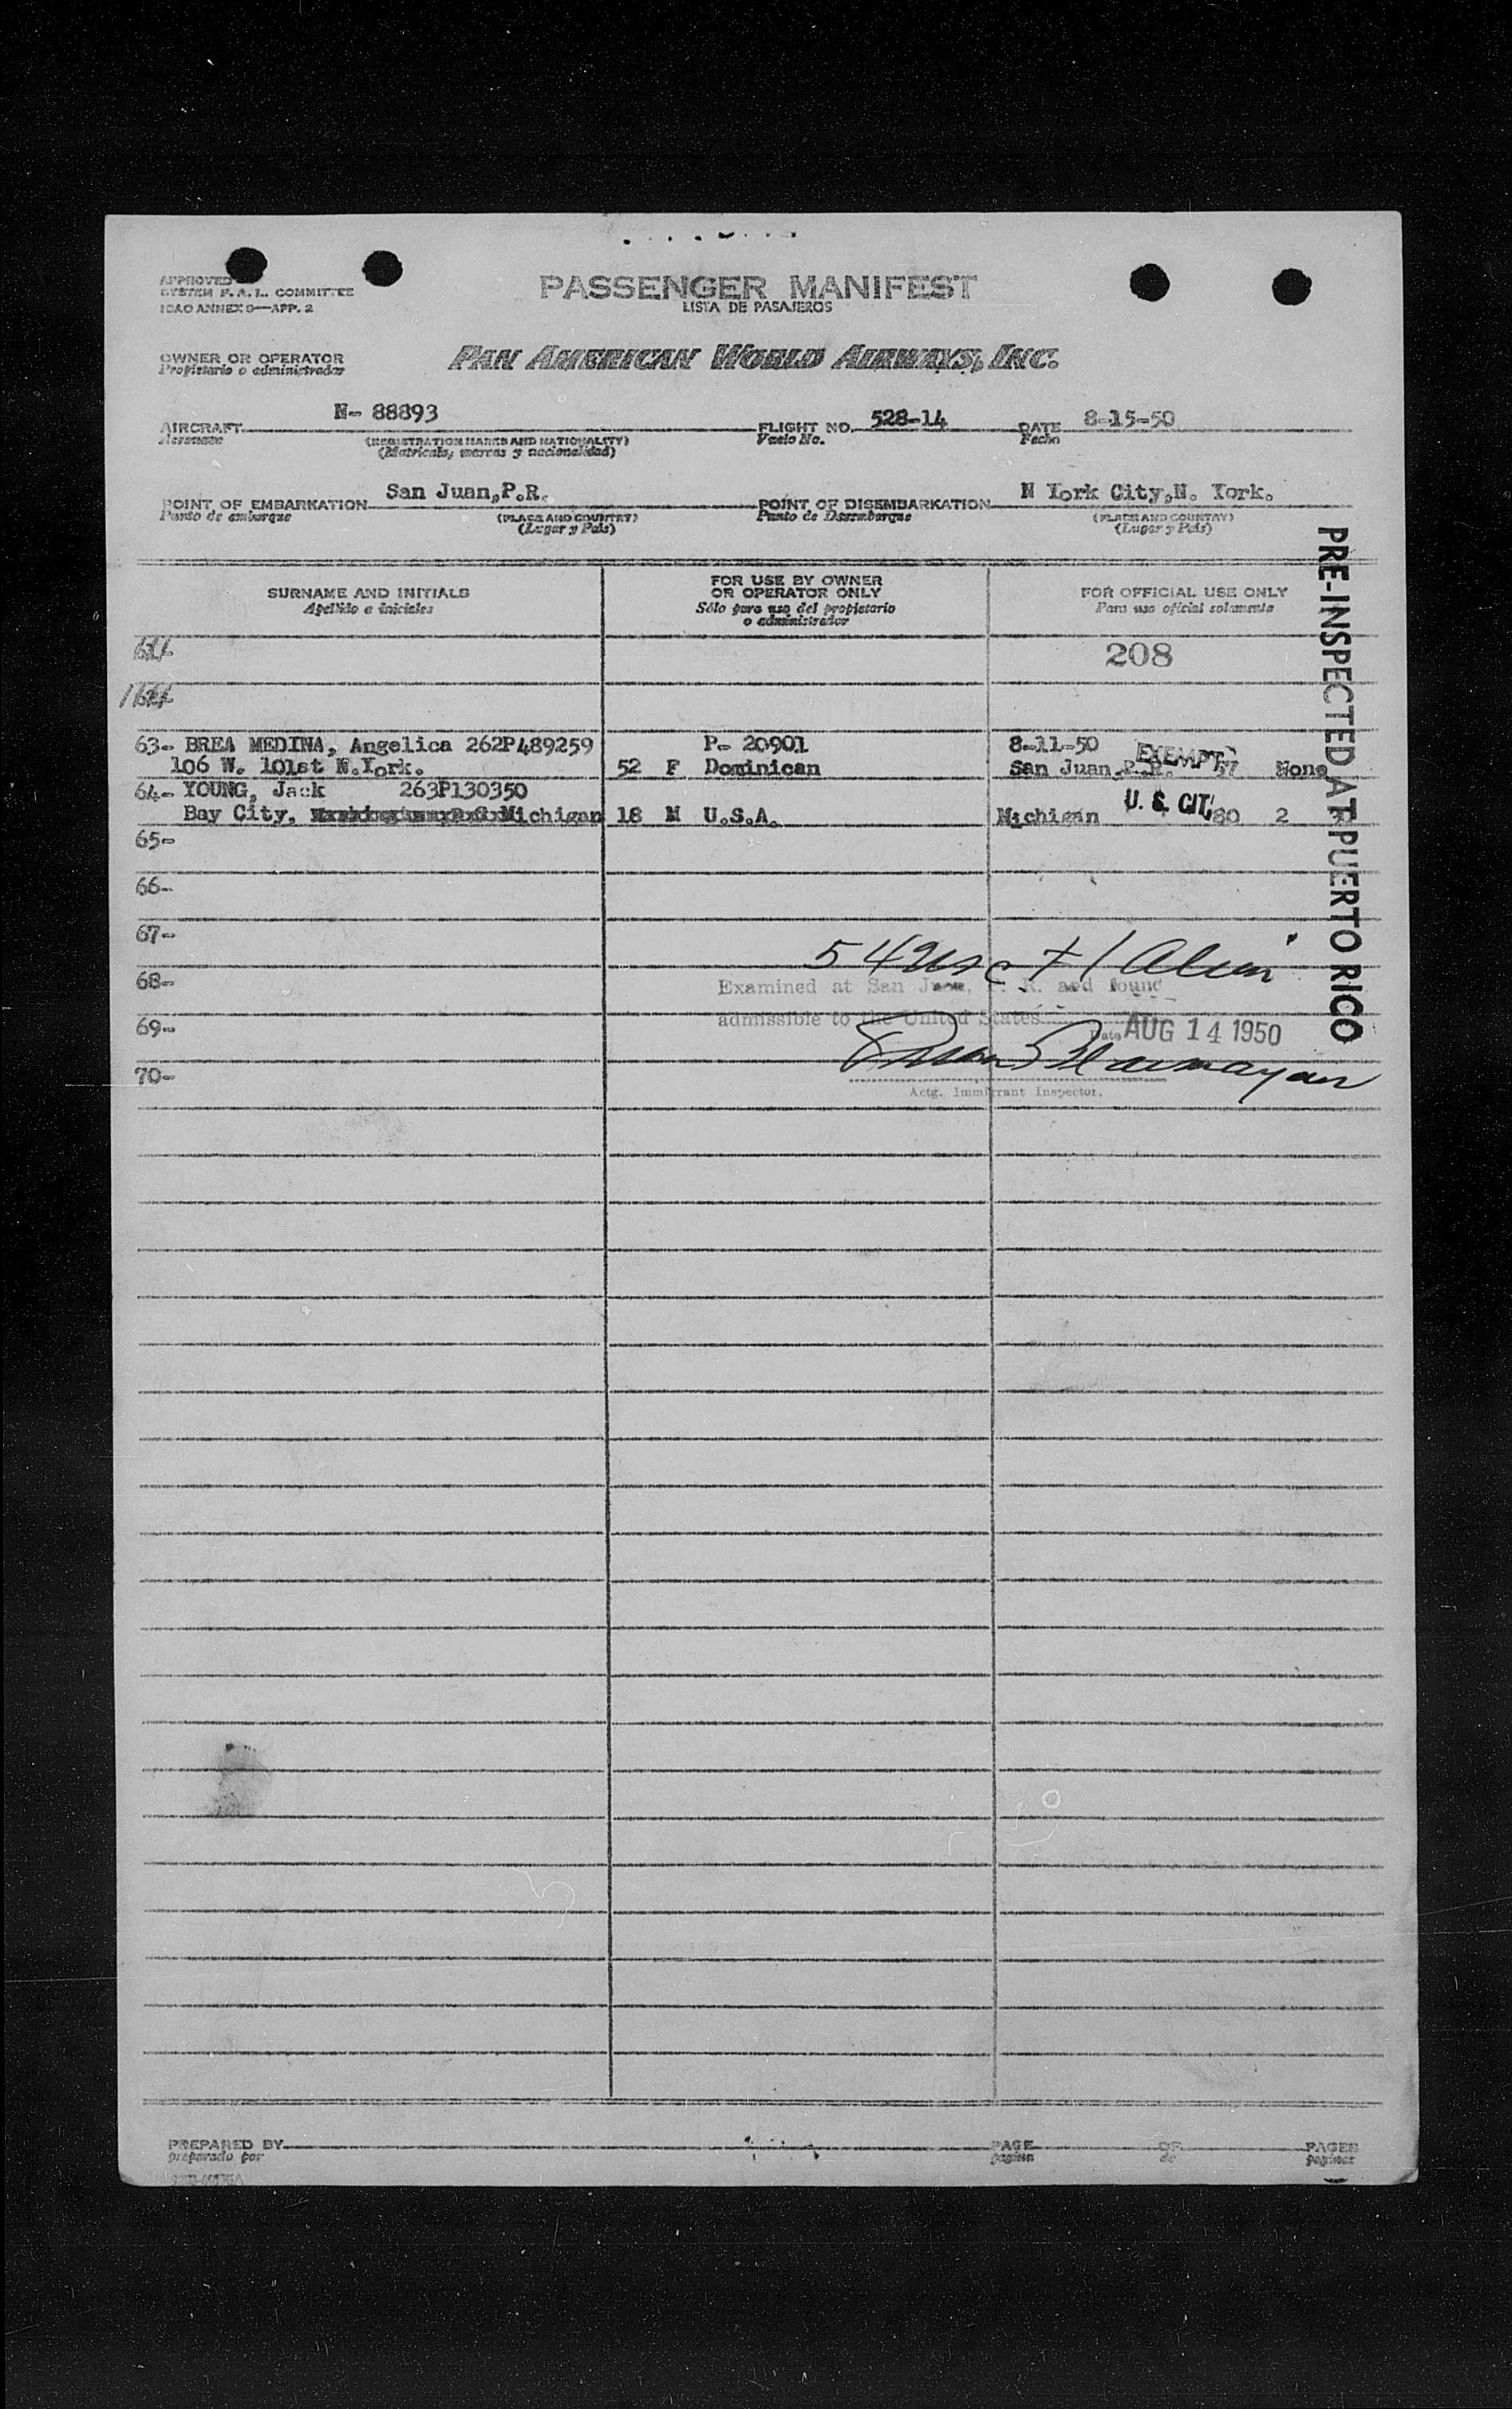 APPROVED
SYSTEM F. A. L. COMMITTEE
ICAO ANNEX 9—APP. 2
PASSENGER MANIFEST
LISTA DE PASAJEROS
OWNER OR OPERATOR
Propietario o administrador
PAN AMERICAN WORLD AIRWAYS, INC.
AIRCRAFT N- 88893
Aeronave
(REGISTRATION MARKS AND NATIONALITY)
(Matricula, marcas y nacionalidad)
FLIGHT NO. 528-14
Vuelo No.
DATE 8-15-50
Fecha
POINT OF EMBARKATION San Juan,P.R.
Punto de embarque
(PLACE AND COUNTRY)
(Lugar y País)
POINT OF DISEMBARKATION N York City,N. York.
Punto de Desembarque
(PLACE AND COUNTRY)
(Lugar y País)
SURNAME AND INITIALS
Apellido e iniciales
FOR USE BY OWNER
OR OPERATOR ONLY
Sólo para uso del propietario
o administrador
FOR OFFICIAL USE ONLY
Para uso oficial solamente
208
63- BREA MEDINA, Angelica 262P489259 P- 20901 8-11-50 EXEMPT
106 W. 101st N.York. 52 F Dominican San Juan P.R. 57 None
64- YOUNG, Jack 263P130350
Bay City, Michigan 18 M U.S.A. Michigan U. S. CIT. 80 2
65-
66-
67-
68-
69-
70-
54 usc + 1 Alien
Examined at San Juan, P. R. and found
admissible to the United States
Date AUG 14 1950
Actg. Immigrant Inspector.
PRE-INSPECTED AT PUERTO RICO
PREPARED BY
preparado por
PAGE OF PAGES
página de páginas